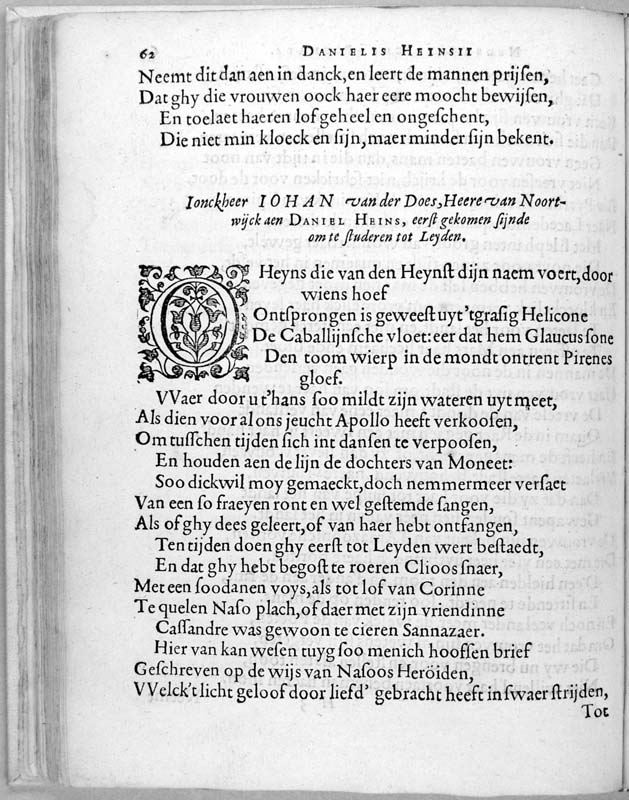 62 DANIELIS HEINSII
Neemt dit dan aen in danck, en leert de mannen prijsen,
Dat ghy die vrouwen oock haer eere moocht bewijsen,
En toelaet haeren lof geheel en ongeschent,
Die niet min kloeck en sijn, maer minder sijn bekent.
Ionckheer IOHAN van der Does, Heere van Noort-
wijck aen DANIEL HEINS, eerst gekomen sijnde
om te studeren tot Leyden.
O Heyns die van den Heynst dijn naem voert, door
wiens hoef
Ontsprongen is geweest uyt 'tgrasig Helicone
De Caballijnsche vloet: eer dat hem Glaucus sone
Den toom wierp in de mondt ontrent Pirenes
gloef.
VVaer door u t'hans soo mildt zijn wateren uyt meet,
Als dien voor al ons jeucht Apollo heeft verkoosen,
Om tusschen tijden sich int dansen te verpoosen,
En houden aen de lijn de dochters van Moneet:
Soo dickwil moy gemaeckt, doch nemmermeer versaet
Van een so fraeyen ront en wel gestemde sangen,
Als of ghy dees geleert, of van haer hebt ontfangen,
Ten tijden doen ghy eerst tot Leyden wert bestaedt,
En dat ghy hebt begost te roeren Clioos snaer,
Met een soodanen voys, als tot lof van Corinne
Te quelen Naso plach, of daer met zijn vriendinne
Cassandre was gewoon te cieren Sannazaer.
Hier van kan wesen tuyg soo menich hoofsen brief
Geschreven op de wijs van Nasoos Heröiden,
VVelck't licht geloof door liefd' gebracht heeft in swaer strijden,
Tot